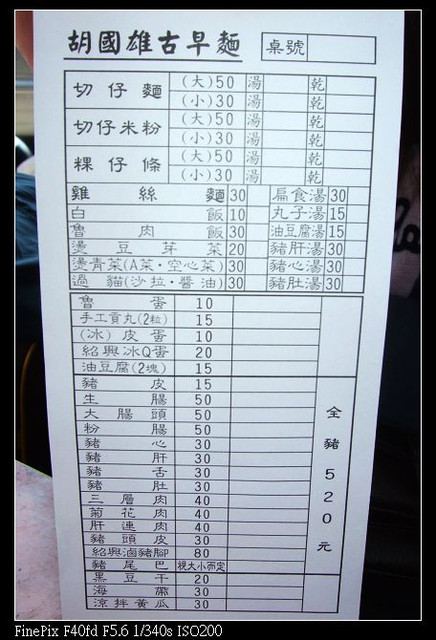 胡國雄古早麵 桌號
切仔麵 (大)50 湯 乾
(小)30 湯 乾
切仔米粉 (大)50 湯 乾
(小)30 湯 乾
粿仔條 (大)50 湯 乾
(小)30 湯 乾
雞絲麵 30 扁食湯 30
白飯 10 丸子湯 15
魯肉飯 30 油豆腐湯 15
燙豆芽菜 20 豬肝湯 30
燙青菜(A菜·空心菜) 30 豬心湯 30
過貓(沙拉·醬油) 30 豬肚湯 30
魯蛋 10
手工貢丸(2粒) 15
(冰)皮蛋 10
紹興冰Q蛋 20
油豆腐(2塊) 15
豬皮 15
生腸 50
大腸頭 50
粉腸 50
豬心 30
豬肝 30
豬舌 30
豬肚 30
三層肉 40
菊花肉 40
肝連肉 40
豬頭皮 30
紹興滷豬腳 80
豬尾巴 視大小而定
全豬520元
黑豆干 20
海帶 30
涼拌黃瓜 30
FinePix F40fd F5.6 1/340s ISO200